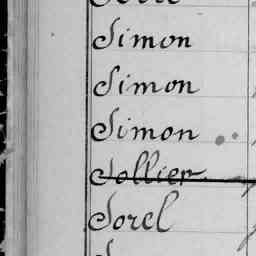 Simon
Simon
Simon
Sollier
Sorel